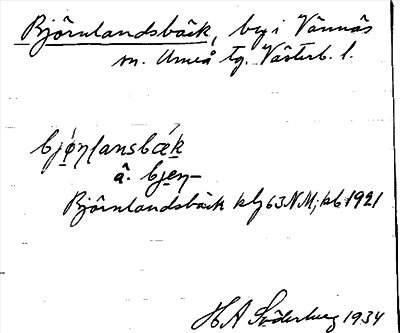 Björnlandsbäck, by i Vännäs
sn. Umeå tg. Västerb. l.
bjøṇlansbæk
â. bjeṇ-
Björnlandsbäck klg 63 NM; kb 1921
H A Söderberg 1934